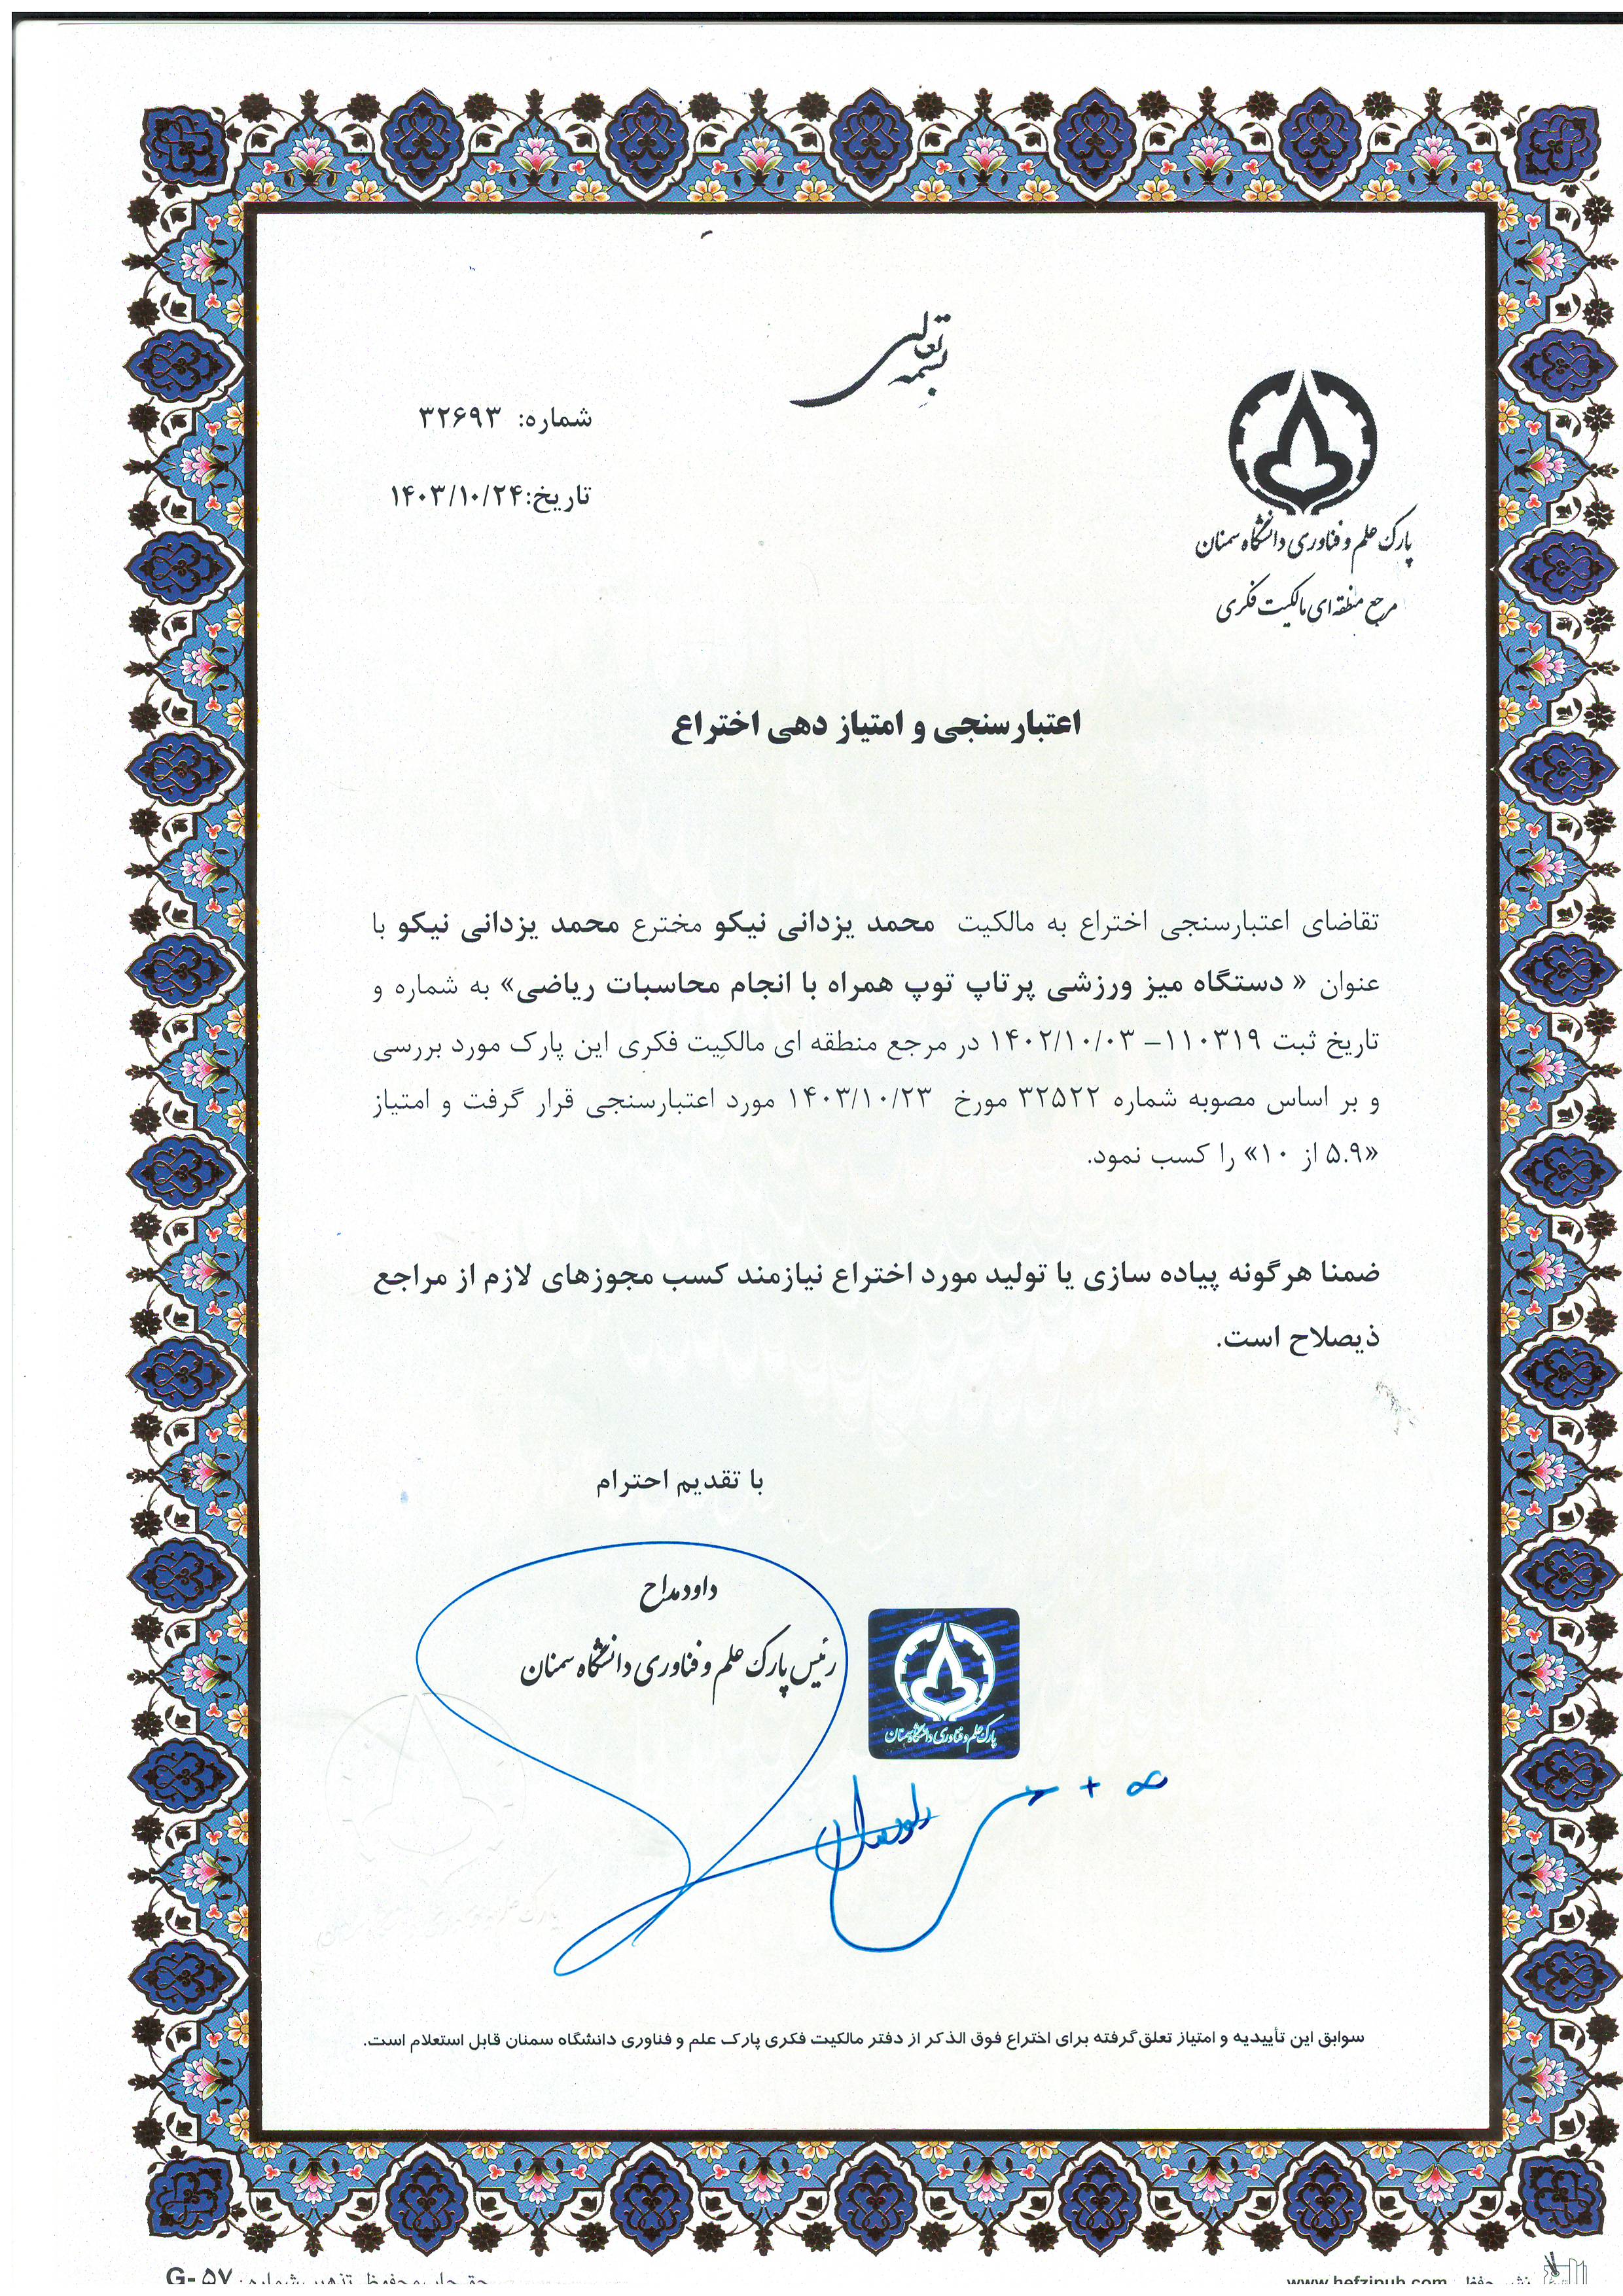 بسمه تعالی
شماره: ۳۲۶۹۳
تاریخ:۱۴۰۳/۱۰/۲۴
پارک علم و فناوری دانشگاه سمنان
مرجع منطقه ای مالکیت فکری
اعتبارسنجی و امتیاز دهی اختراع
تقاضای اعتبارسنجی اختراع به مالکیت محمد یزدانی نیکو مخترع محمد یزدانی نیکو با
عنوان « دستگاه میز ورزشی پرتاپ توپ همراه با انجام محاسبات ریاضی» به شماره و
تاریخ ثبت ۱۱۰۳۱۹– ۱۴۰۲/۱۰/۰۳ در مرجع منطقه ای مالکیت فکری این پارک مورد بررسی
و بر اساس مصوبه شماره ۳۲۵۲۲ مورخ ۱۴۰۳/۱۰/۲۳ مورد اعتبارسنجی قرار گرفت و امتیاز
«۵.۹ از ۱۰» را کسب نمود.
ضمنا هرگونه پیاده سازی یا تولید مورد اختراع نیازمند کسب مجوزهای لازم از مراجع
ذیصلاح است.
با تقدیم احترام
داود مداح
رئیس پارک علم و فناوری دانشگاه سمنان
پارک علم و فناوری دانشگاه سمنان
سوابق این تأییدیه و امتیاز تعلق گرفته برای اختراع فوق الذکر از دفتر مالکیت فکری پارک علم و فناوری دانشگاه سمنان قابل استعلام است.
نشر حفظی www.hefzipub.com
حق چاپ محفوظ تذهیب شماره: G-۵۷